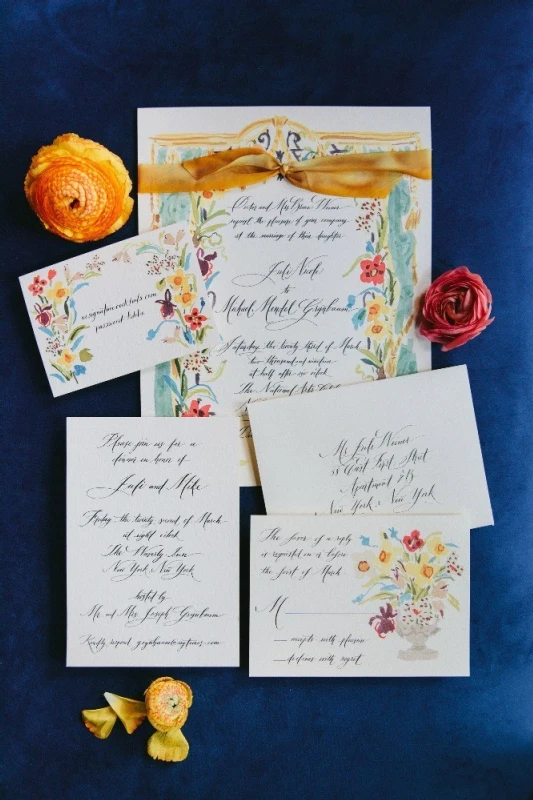 and Mrs. Bruce Winer
request the pleasure of your company
at the marriage of their daughter
Julie Nicole
to
Michael Mendel Grynbaum
Saturday the twenty third of March
two thousand and nineteen
at half after six o'clock
The National Arts
password:
Please join us for a
dinner in honor of
Julie and Mike
Friday the twenty second of March
at eight o'clock
The Waverly Inn
New York, New York
hosted by
Mr. and Mrs. Joseph Grynbaum
Kindly respond
Ms. Julie Winer
East First Street
Apartment
New York, New York
The favor of a reply
is requested on or before
the first of March
M
accepts with pleasure
declines with regret